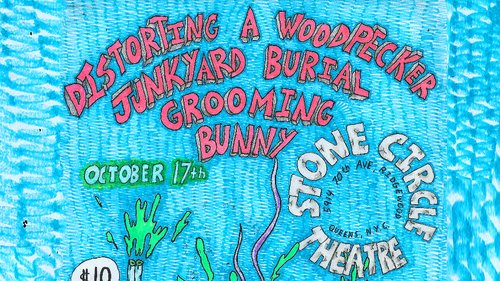 DISTORTING A WOODPECKER
JUNKYARD BURIAL
GROOMING
BUNNY
OCTOBER 17th
STONE CIRCLE
5914 70TH AVE, REDGEWOOD
QUEENS, N.Y.C.
THEATRE
$10